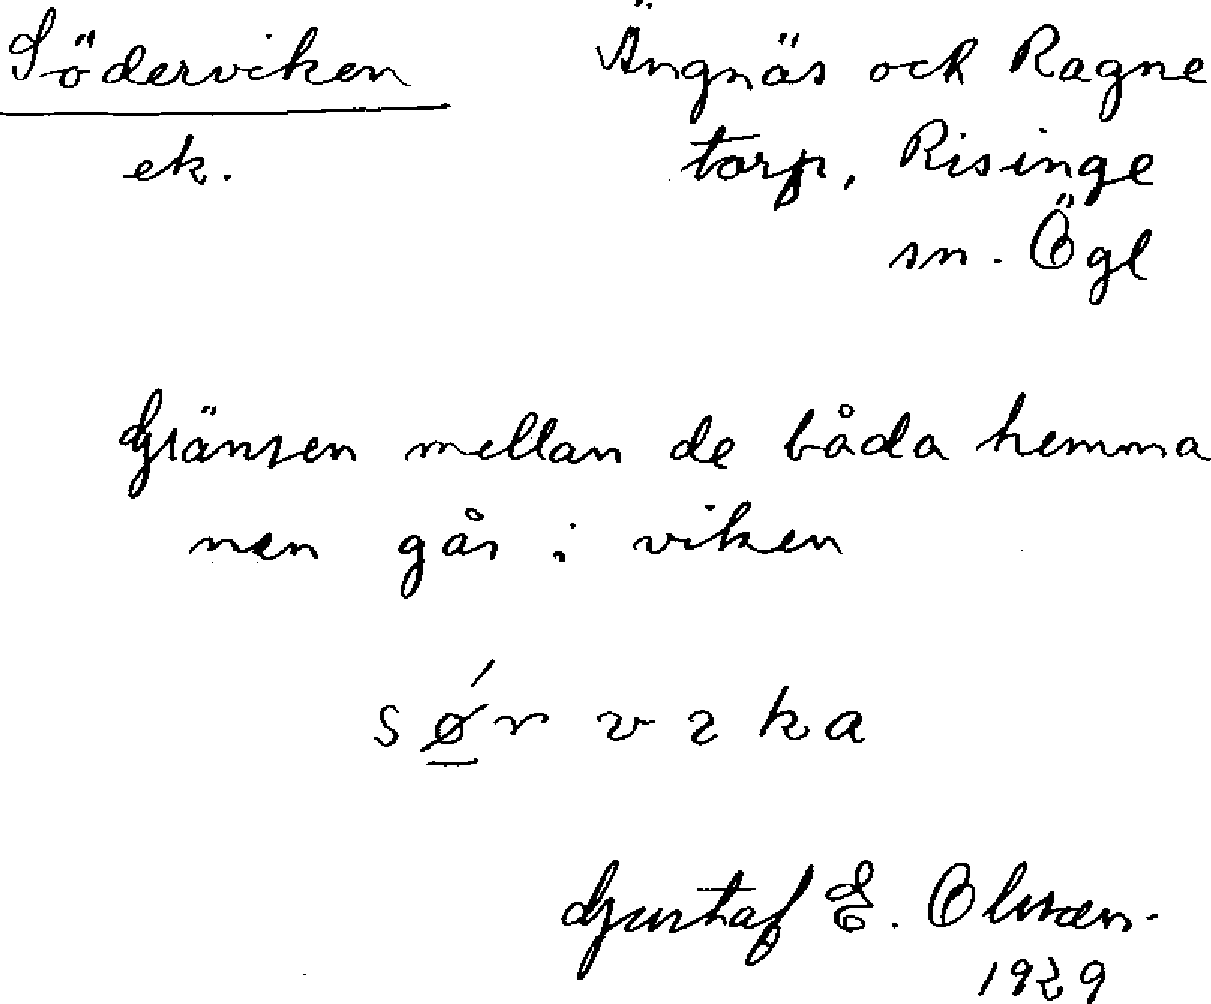 Söderviken Ängnäs och Ragne
ek. torp, Risinge
sn. Ögl
Gränsen mellan de båda hemma
nen går i viken
s ǿ r v ɩ k a
Gustaf E. Olsson.
1929